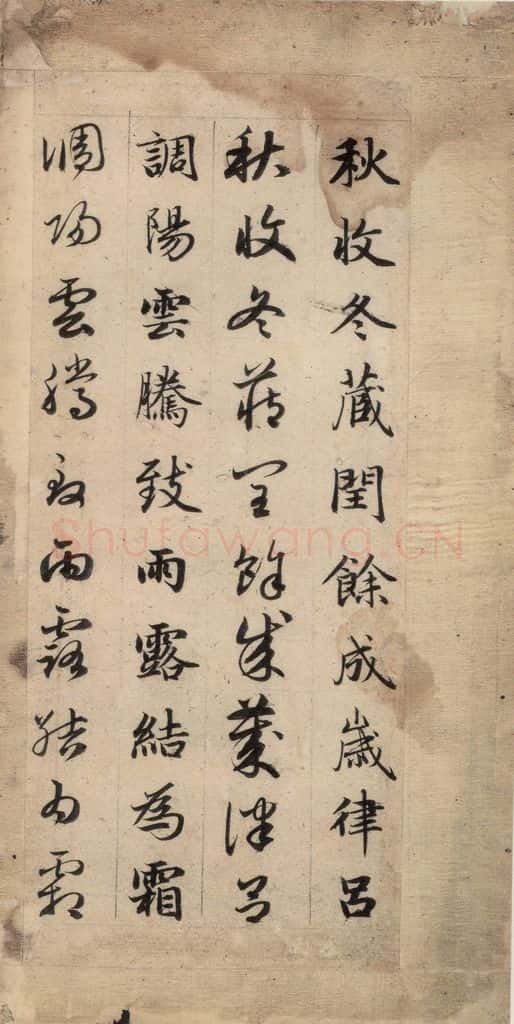 秋收冬藏閏餘成歲律呂
秋收冬藏閏餘成歲律呂
調陽雲騰致雨露結為霜
調陽雲騰致雨露結為霜
Shufawang.CN